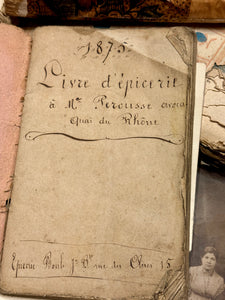 1875
Livre d'épicerie
à Mr Perousse avocat
Quai du Rhône
Epicerie rue des 15